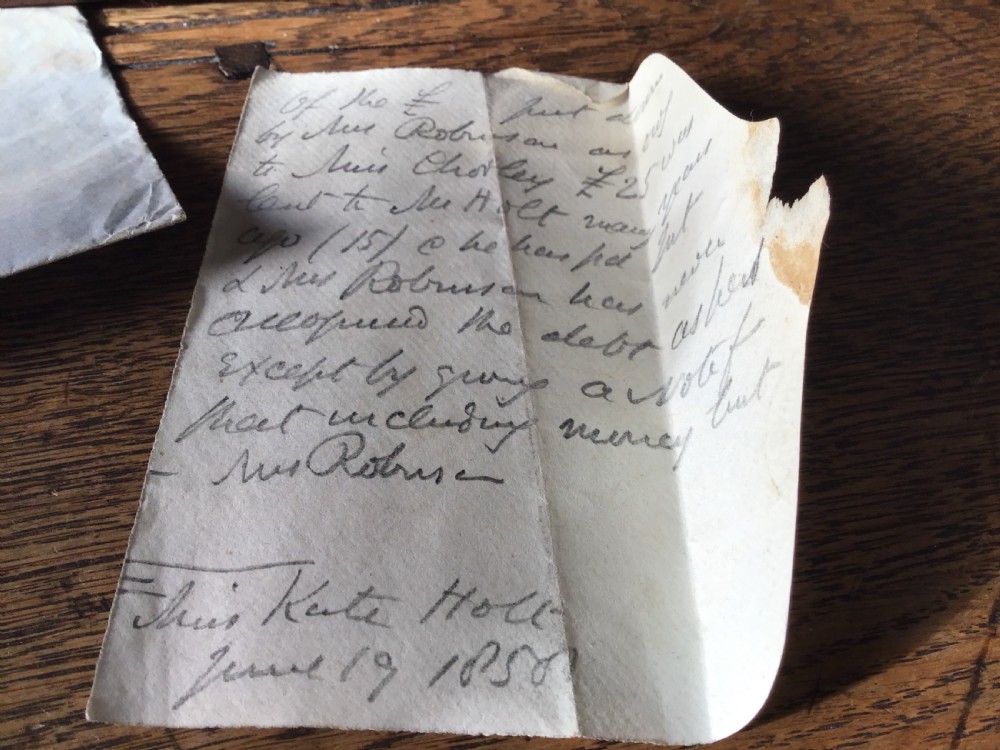 Of the £ put down
by Mrs Robinson as owg
to Miss Chorley £25 was
lent to Mr Holt many years
ago (15) & he has pd Int
& Mrs Robinson has never
the debt as hers
except by giving a Note for
that including money lent
- Mrs Robinson
Miss Kate Holt
June 19 1858